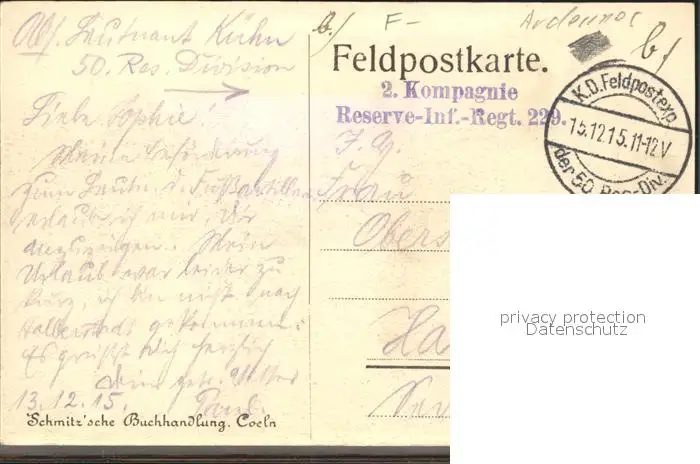 Abs. Leutnant Kühn
50. Res. Division
Liebe Sophie!
Meine Beförderung
zum Leutn. d. Fußartillerie
erlaube ich mir, Dir
anzuzeigen. Mein
Urlaub war leider zu
kurz, ich bin nicht nach
Halberstadt gekommen.
Es grüßt Dich herzlich
Dein
13.12.15.
Schmitz'sche Buchhandlung. Coeln
F-
Ardennes
b/
b/
Feldpostkarte.
2. Kompagnie
Reserve-Inf.-Regt. 229.
K.D.Feldpostexp.
15.12.15.11-12V
der 50. Res-Div.
Frau
Obers
Ha
privacy protection
Datenschutz